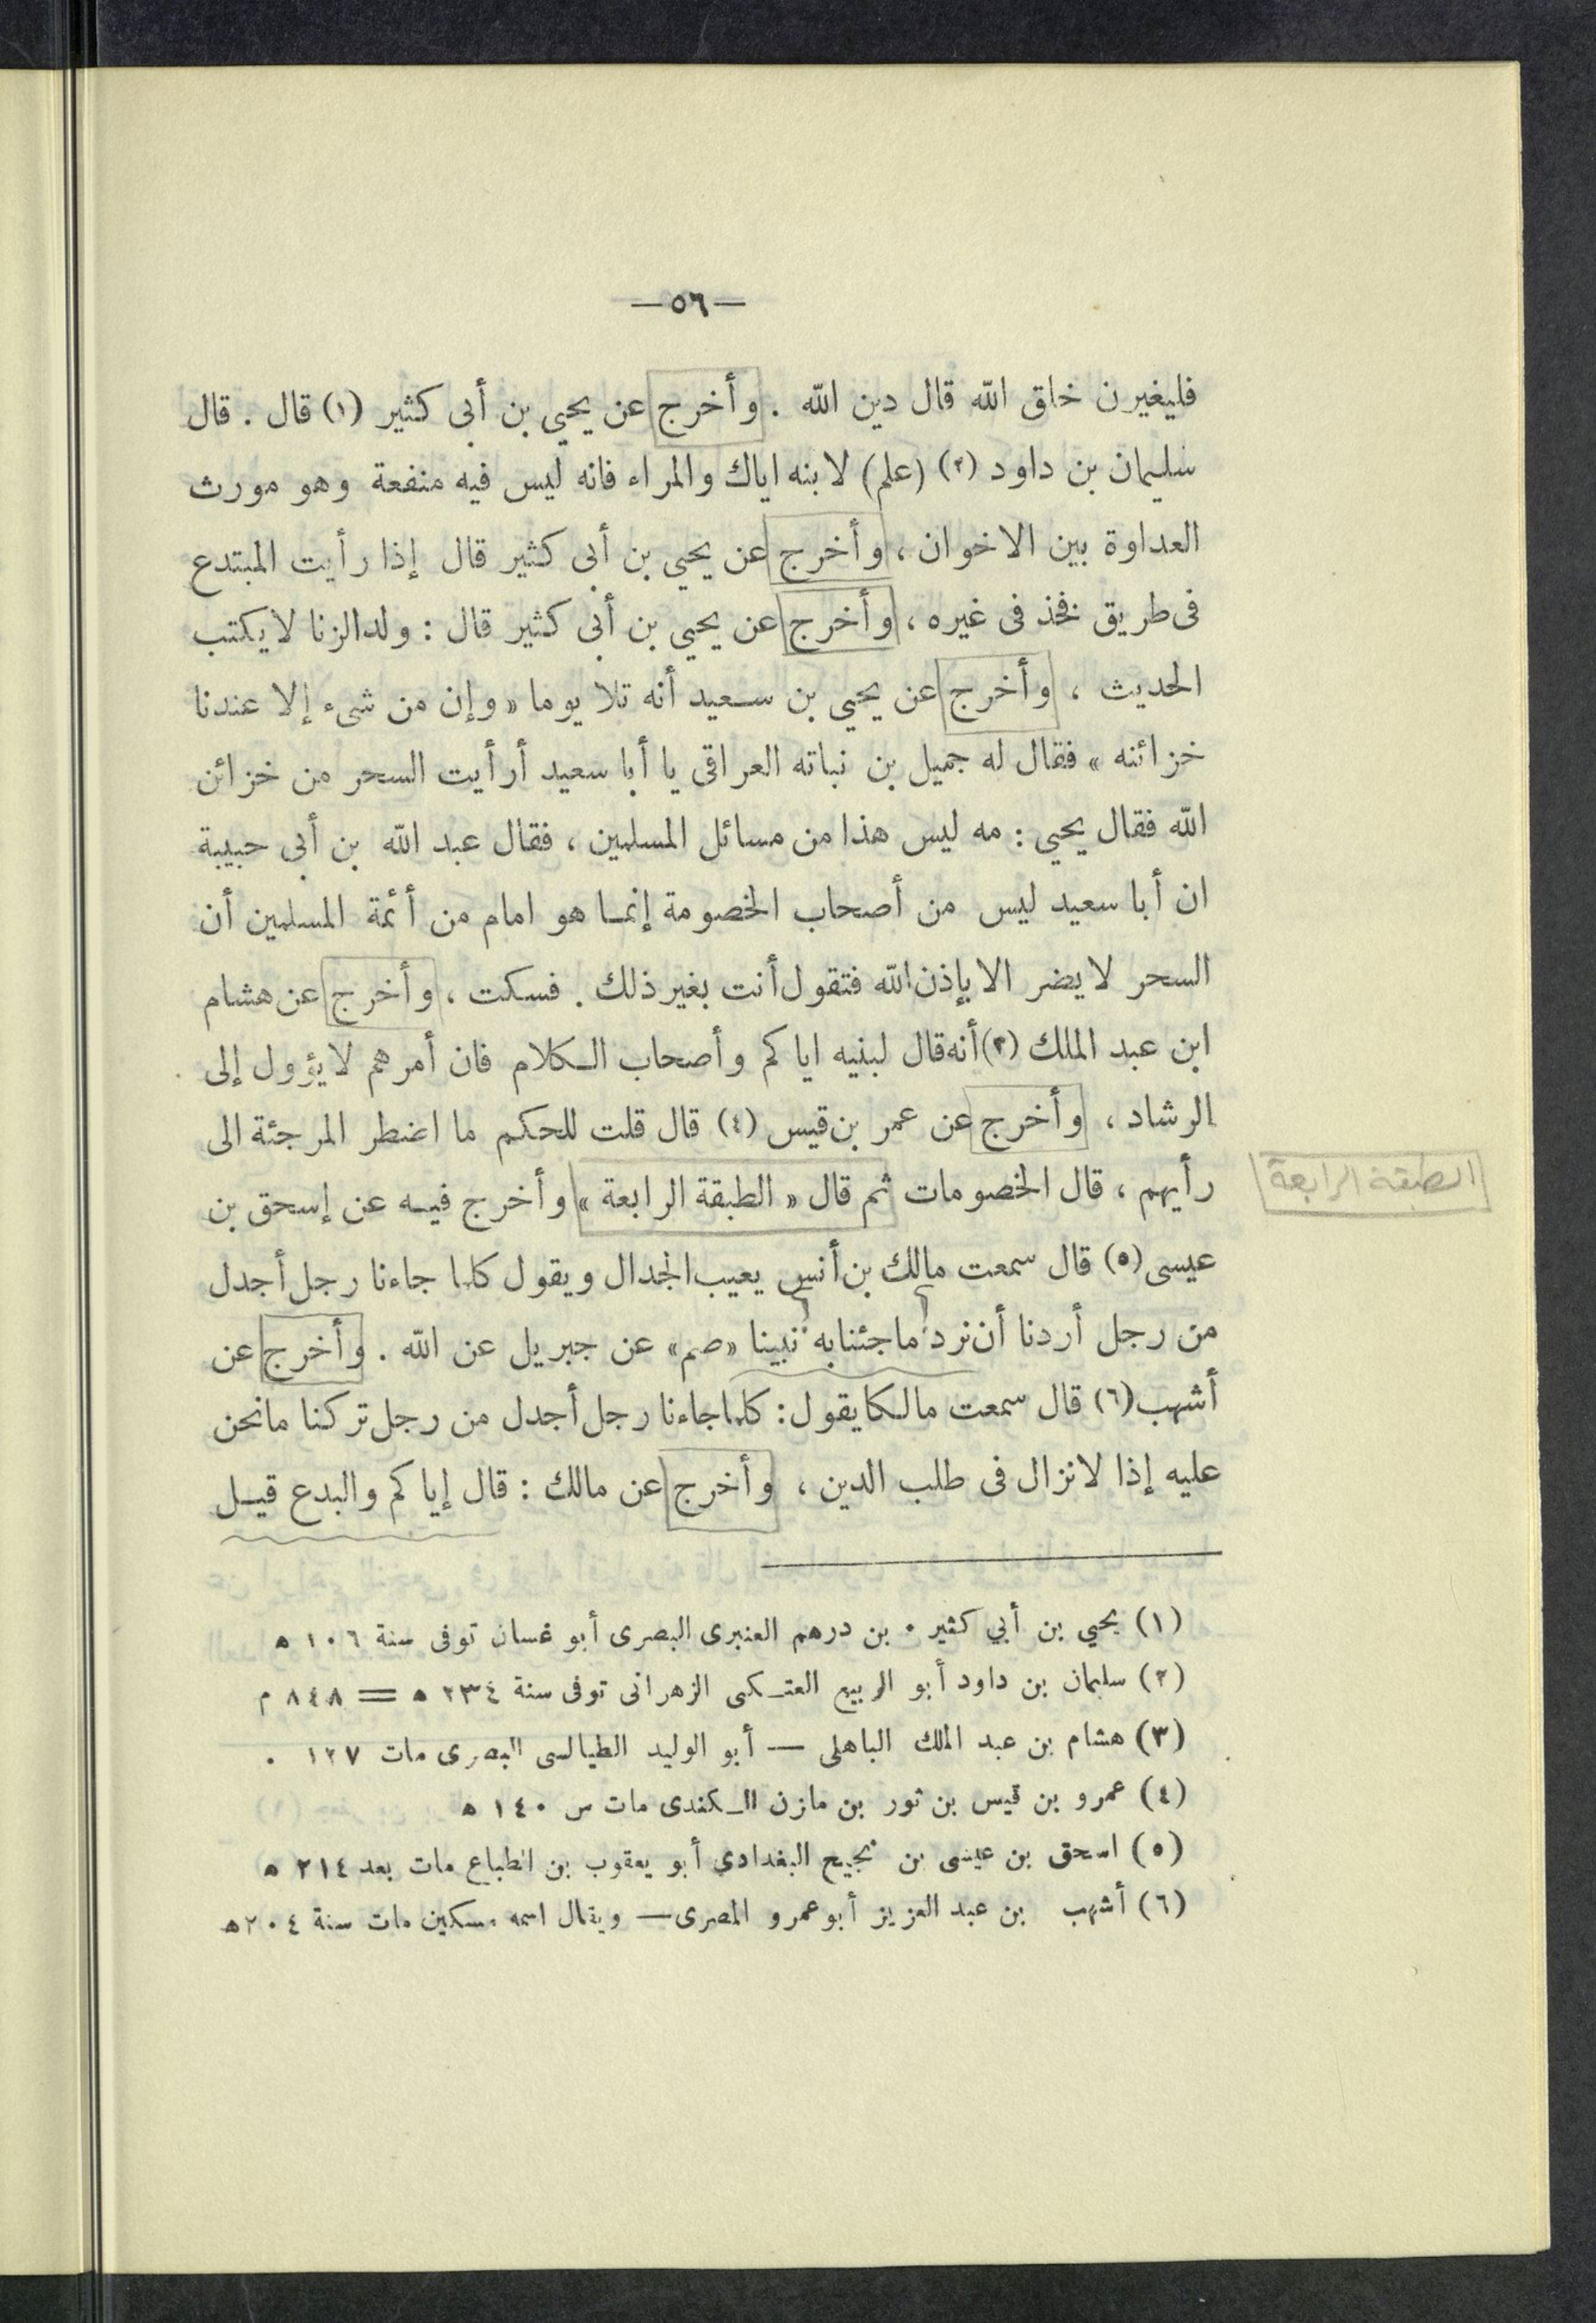 —٥٦—
فليغيرن خلق الله قال دين الله . وأخرج عن يحيي بن أبى كثير (١) قال . قال
سليمان بن داود (٢) (علم) لابنه اياك والمراء فانه ليس فيه منفعة وهو مورث
العداوة بين الاخوان ، وأخرج عن يحيي بن أبى كثير قال إذا رأيت المبتدع
فى طريق نخذ فى غيره ، وأخرج عن يحيي بن أبى كثير قال : ولد الزنا لا يكتب
الحديث ، وأخرج عن يحيي بن سعيد أنه تلا يوما « وإن من شىء إلا عندنا
خزائنه » فقال له جميل بن نباته العراقى يا أبا سعيد أرأيت السحر من خزائن
الله فقال يحيي : مه ليس هذا من مسائل المسلمين ، فقال عبد الله بن أبى حبيبة
ان أبا سعيد ليس من أصحاب الخصومة إنما هو امام من أئمة المسلمين أن
السحر لا يضر الا بإذن الله فتقول أنت بغير ذلك . فسكت ، وأخرج عن هشام
ابن عبد الملك (٣) أنه قال لبنيه اياكم وأصحاب الكلام فان أمرهم لا يؤول إلى
الرشاد ، وأخرج عن عمر بن قيس (٤) قال قلت للحكم ما اضطر المرجئة الى
رأيهم ، قال الخصومات ثم قال « الطبقة الرابعة » وأخرج فيه عن إسحق بن
الطبقة الرابعة
عيسى (٥) قال سمعت مالك بن أنس يعيب الجدال ويقول كلما جاءنا رجل أجدل
من رجل أردنا أن نرد ما جئنا به نبينا «صم» عن جبريل عن الله . وأخرج عن
أشهب (٦) قال سمعت مالكا يقول : كلما جاءنا رجل أجدل من رجل تركنا ما نحن
عليه إذا لا نزال فى طلب الدين ، وأخرج عن مالك : قال إياكم والبدع قيل
(١) يحيي بن أبي كثير . بن درهم العنبرى البصرى أبو غسان توفى سنة ١٠٦ ه
(٢) سليمان بن داود أبو الربيع العتكى الزهرانى توفى سنة ٢٣٤ ه = ٨٤٨ م
(٣) هشام بن عبد الملك الباهلى — أبو الوليد الطيالسى البصرى مات ١٢٧ .
(٤) عمرو بن قيس بن ثور بن مازن الكندى مات س ١٤٠ ه
(٥) اسحق بن عيسى بن نجيح البغدادي أبو يعقوب بن الطباع مات بعد ٢١٤ ه
(٦) أشهب بن عبد العزيز أبو عمرو المصرى — ويقال اسمه مسكين مات سنة ٢٠٤ ه